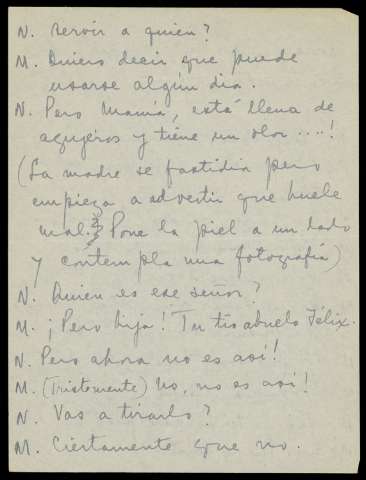 N. Servir a quien?
M. Quiero decir que puede
usarse algún dia.
N. Pero Mamá, está llena de
agujeros y tiene un olor ....!
(La madre se fastidia pero
empieza a advertir que huele
mal. Pone la piel a un lado
y contempla una fotografía)
N. Quien es ese señor?
M. ¡Pero hija! Tu tio abuelo Félix.
N. Pero ahora no es asi!
M. (Tristemente) No, no es asi!
N. Vas a tirarlo?
M. Ciertamente que no.